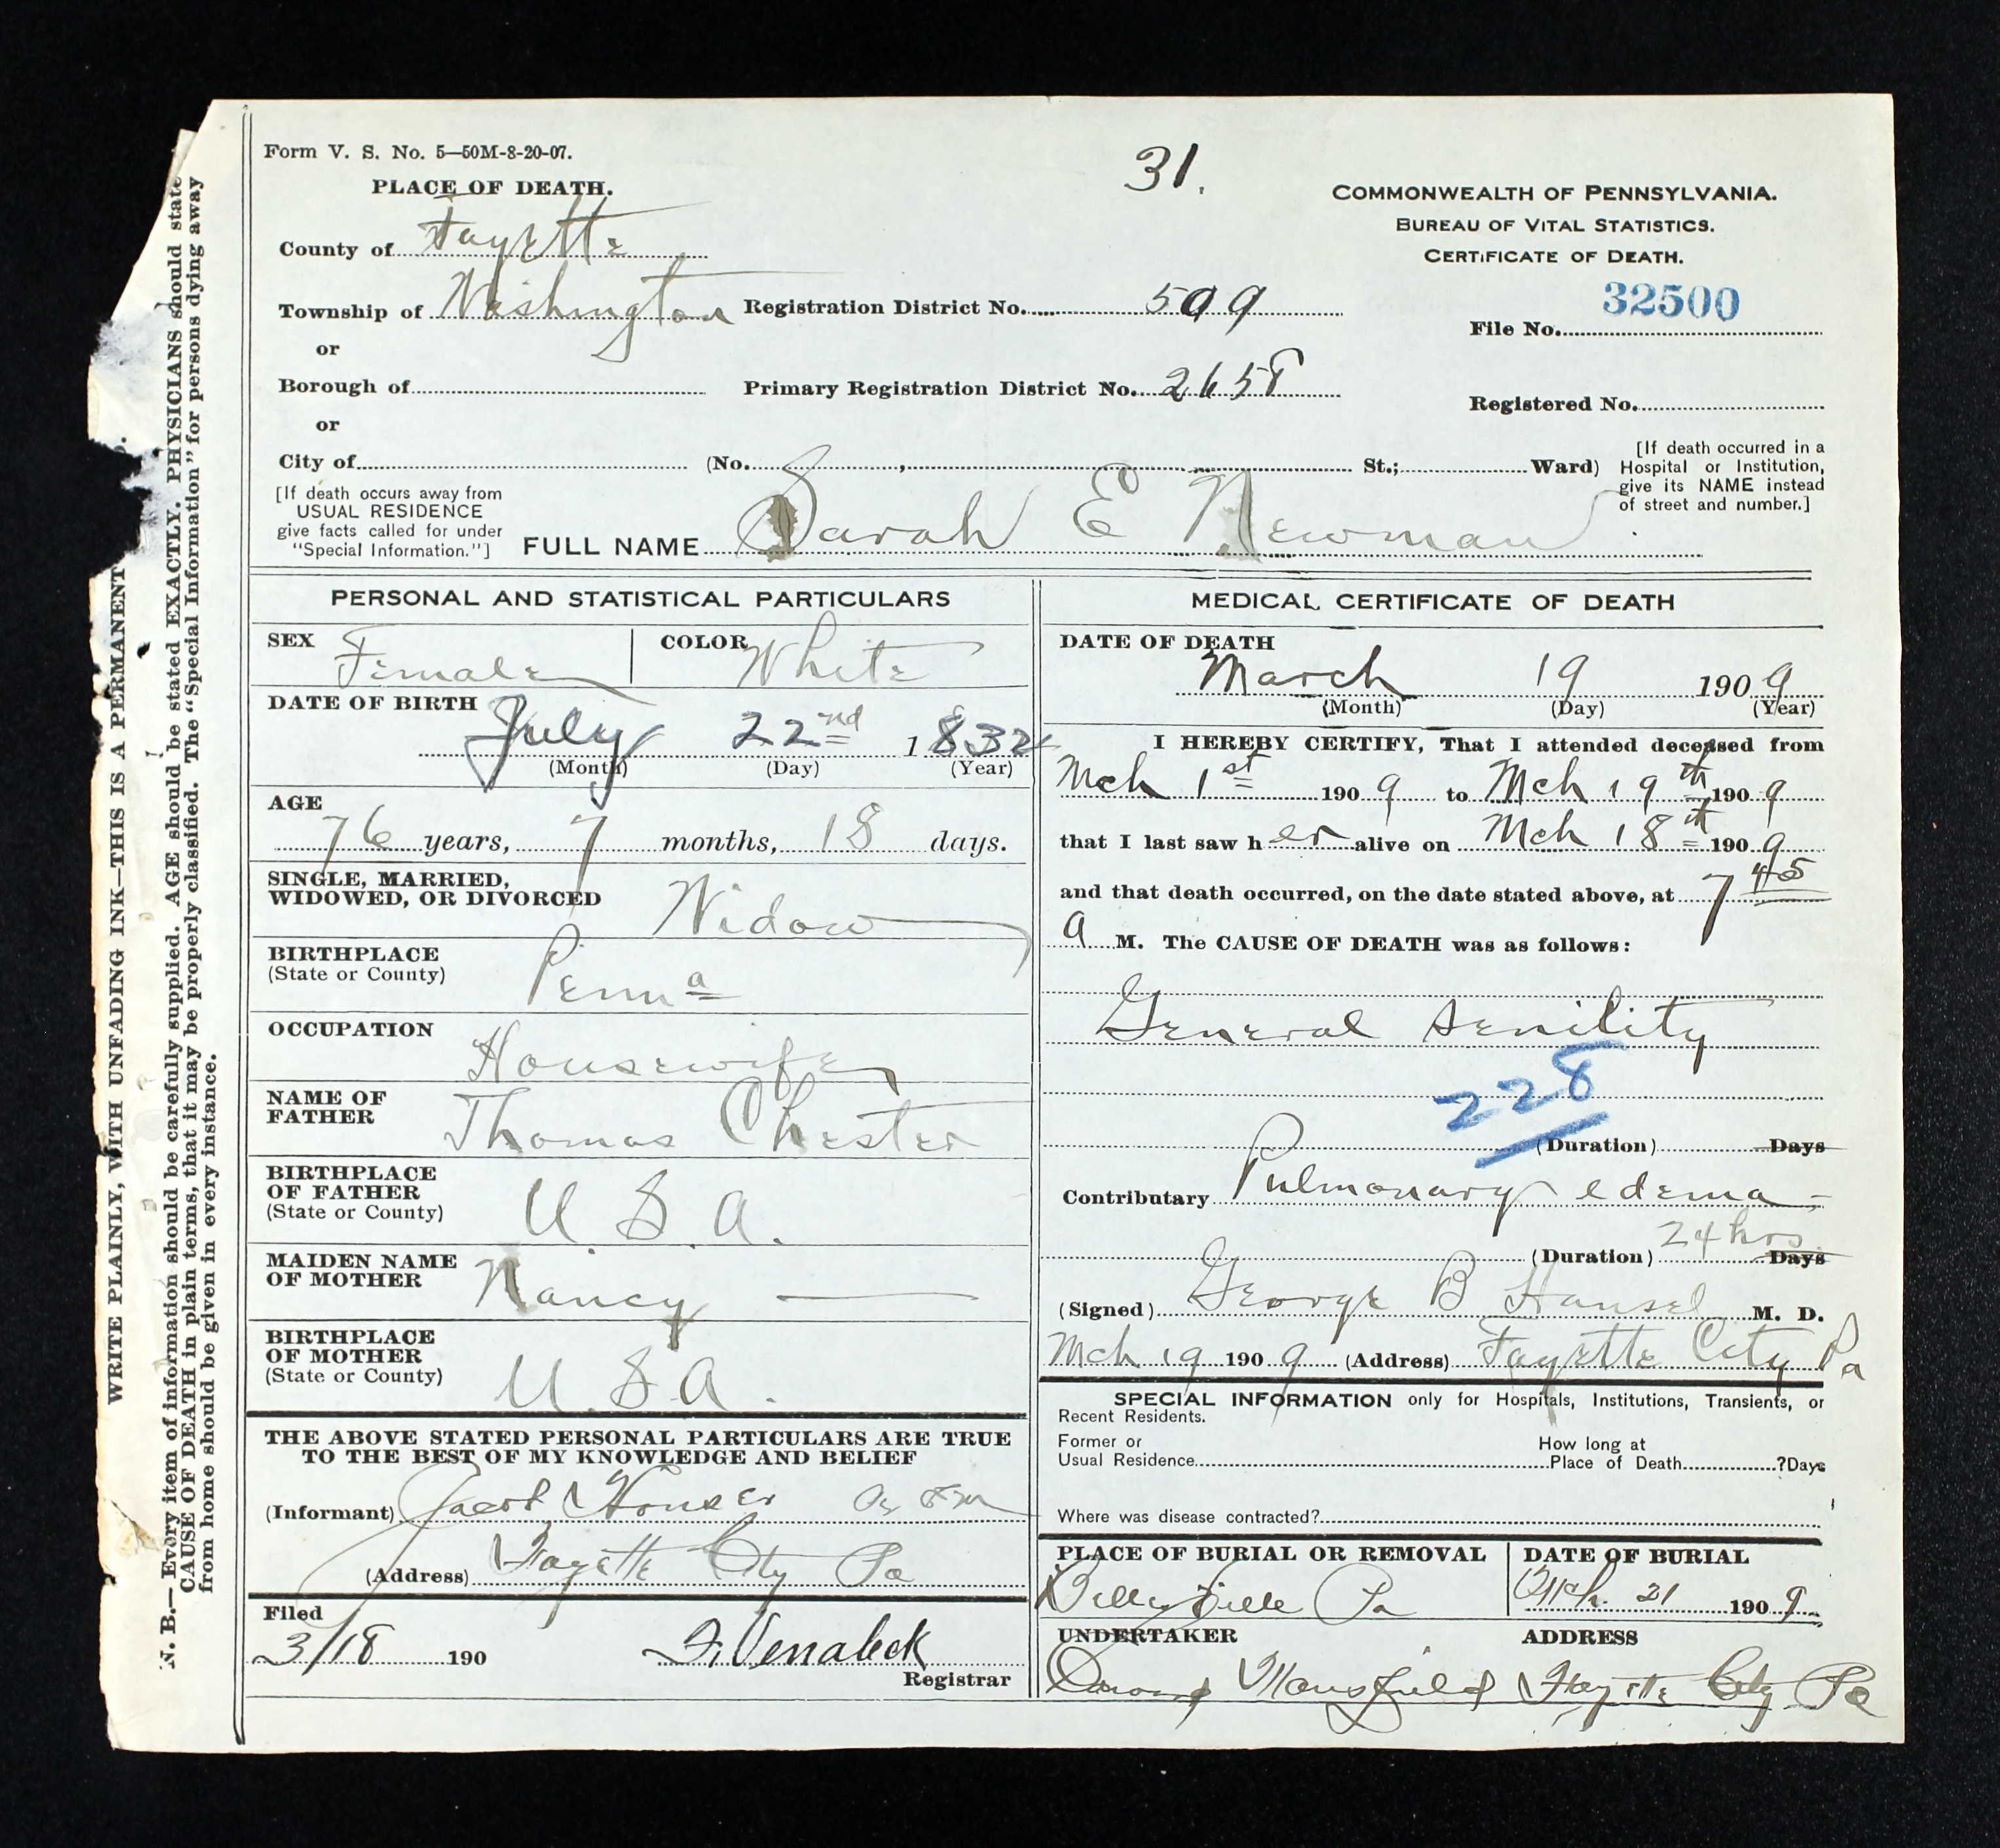 Form V. S. No. 5—50M-8-20-07.
31.
PLACE OF DEATH.
COMMONWEALTH OF PENNSYLVANIA.
BUREAU OF VITAL STATISTICS.
CERTIFICATE OF DEATH.
County of Fayette
Township of Washington Registration District No. 599
32500
File No.
or
Borough of Primary Registration District No. 2658
Registered No.
or
City of (No. , St.; Ward)
[If death occurred in a
Hospital or Institution,
give its NAME instead
of street and number.]
[If death occurs away from
USUAL RESIDENCE
give facts called for under
"Special Information."]
FULL NAME Sarah E Newman
PERSONAL AND STATISTICAL PARTICULARS
SEX Female COLOR White
DATE OF BIRTH
July 22nd 1832
(Month) (Day) (Year)
AGE
76 years, 7 months, 18 days.
SINGLE, MARRIED,
WIDOWED, OR DIVORCED Widow
BIRTHPLACE
(State or County) Penna
OCCUPATION Housewife
NAME OF
FATHER Thomas Chester
BIRTHPLACE
OF FATHER
(State or County) U. S. A.
MAIDEN NAME
OF MOTHER Nancy —
BIRTHPLACE
OF MOTHER
(State or County) U. S. A.
THE ABOVE STATED PERSONAL PARTICULARS ARE TRUE
TO THE BEST OF MY KNOWLEDGE AND BELIEF
(Informant) Jacob Houser
(Address) Fayette City Pa
Filed
3/18 190 Venableck
Registrar
MEDICAL CERTIFICATE OF DEATH
DATE OF DEATH
March 19 1909
(Month) (Day) (Year)
I HEREBY CERTIFY, That I attended deceased from
Mch 1st 1909 to Mch 19th 1909
that I last saw her alive on Mch 18th 1909
and that death occurred, on the date stated above, at 7 45
a M. The CAUSE OF DEATH was as follows:
General senility
228
(Duration) Days
Contributary Pulmonary edema
(Duration) 24 hrs Days
(Signed) George B Hansel M. D.
Mch 19 1909 (Address) Fayette City Pa
SPECIAL INFORMATION only for Hospitals, Institutions, Transients, or
Recent Residents.
Former or
Usual Residence
How long at
Place of Death ?Days
Where was disease contracted?
PLACE OF BURIAL OR REMOVAL
Pa
DATE OF BURIAL
Mch. 21 1909
UNDERTAKER ADDRESS
Mansfield Fayette City Pa
WRITE PLAINLY, WITH UNFADING INK—THIS IS A PERMANENT
N. B.—Every item of information should be carefully supplied. AGE should be stated EXACTLY. PHYSICIANS should state
CAUSE OF DEATH in plain terms, that it may be properly classified. The "Special Information" for persons dying away
from home should be given in every instance.